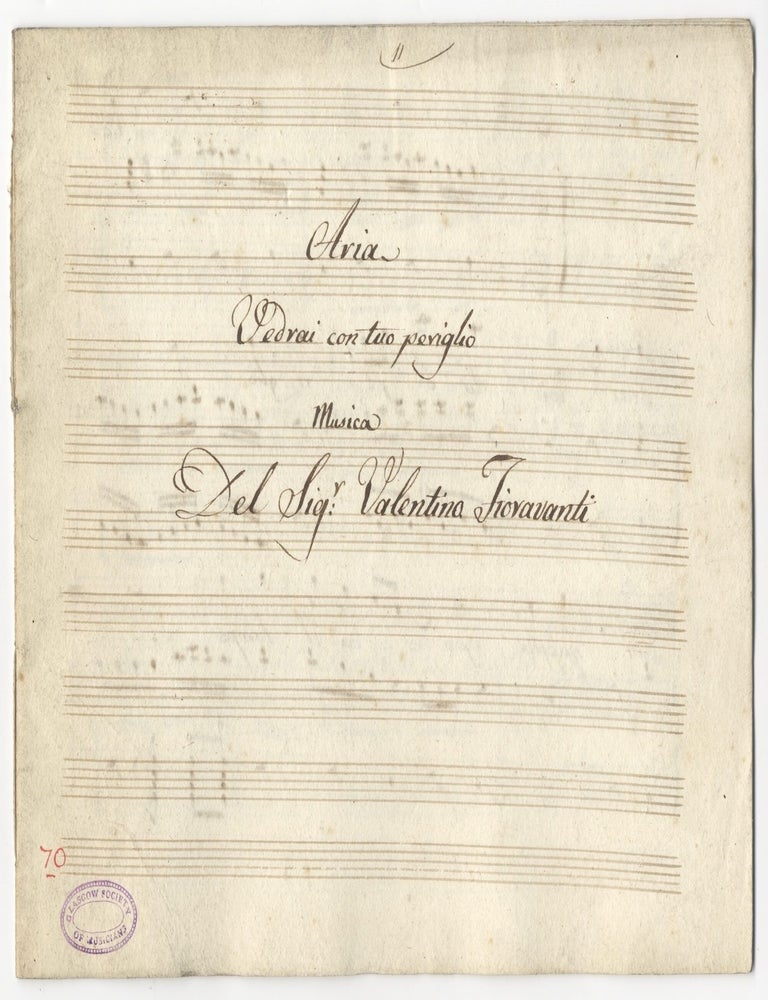 11
Aria
Vedrai con tuo periglio
Musica
Del Sigr: Valentino Fioravanti
70
GLASGOW SOCIETY
OF MUSICIANS